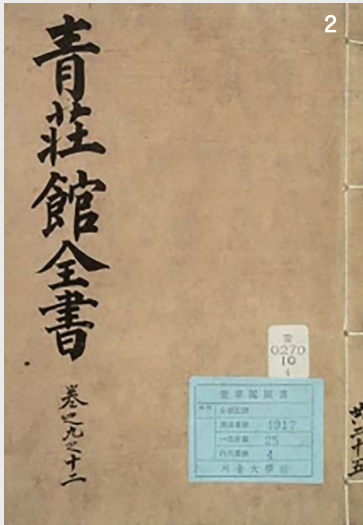 2
青莊館全書
卷之九之十二
奎
0270
10
4
奎章閣圖書
4917
25
4
서울大學校
共二十五